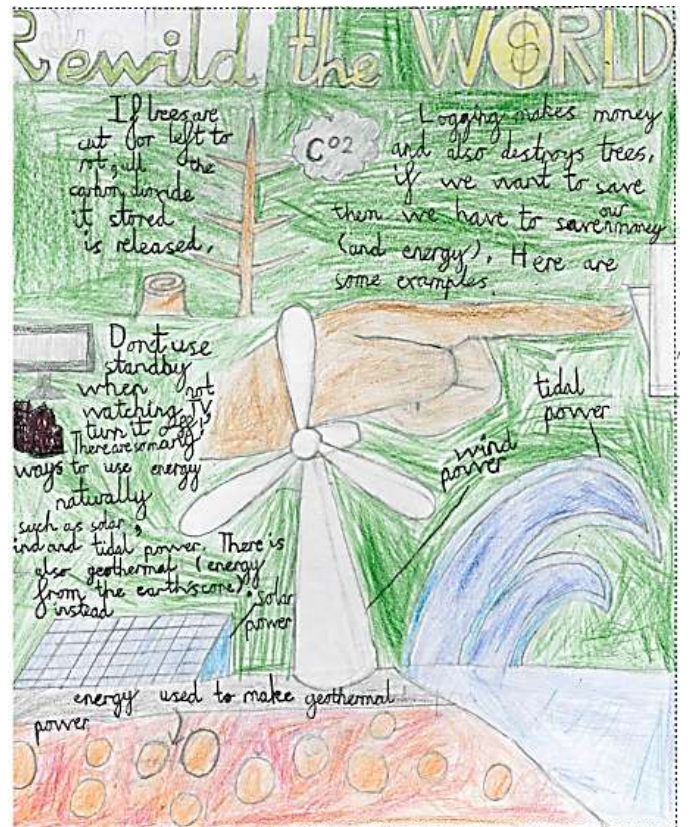 Rewild the WORLD
If trees are
cut or left to
rot, all the
carbon dioxide
it stored
is released.
CO2
Logging makes money
and also destroys trees,
if we want to save
them we have to save our money
(and energy). Here are
some examples.
Dont use
standby
when not
watching TV
turn it off!
There are so many
ways to use energy
naturally
such as solar,
ind and tidal power. There is
also geothermal (energy
from the earth's core).
instead
solar
power
wind
power
tidal
power
energy used to make geothermal
power